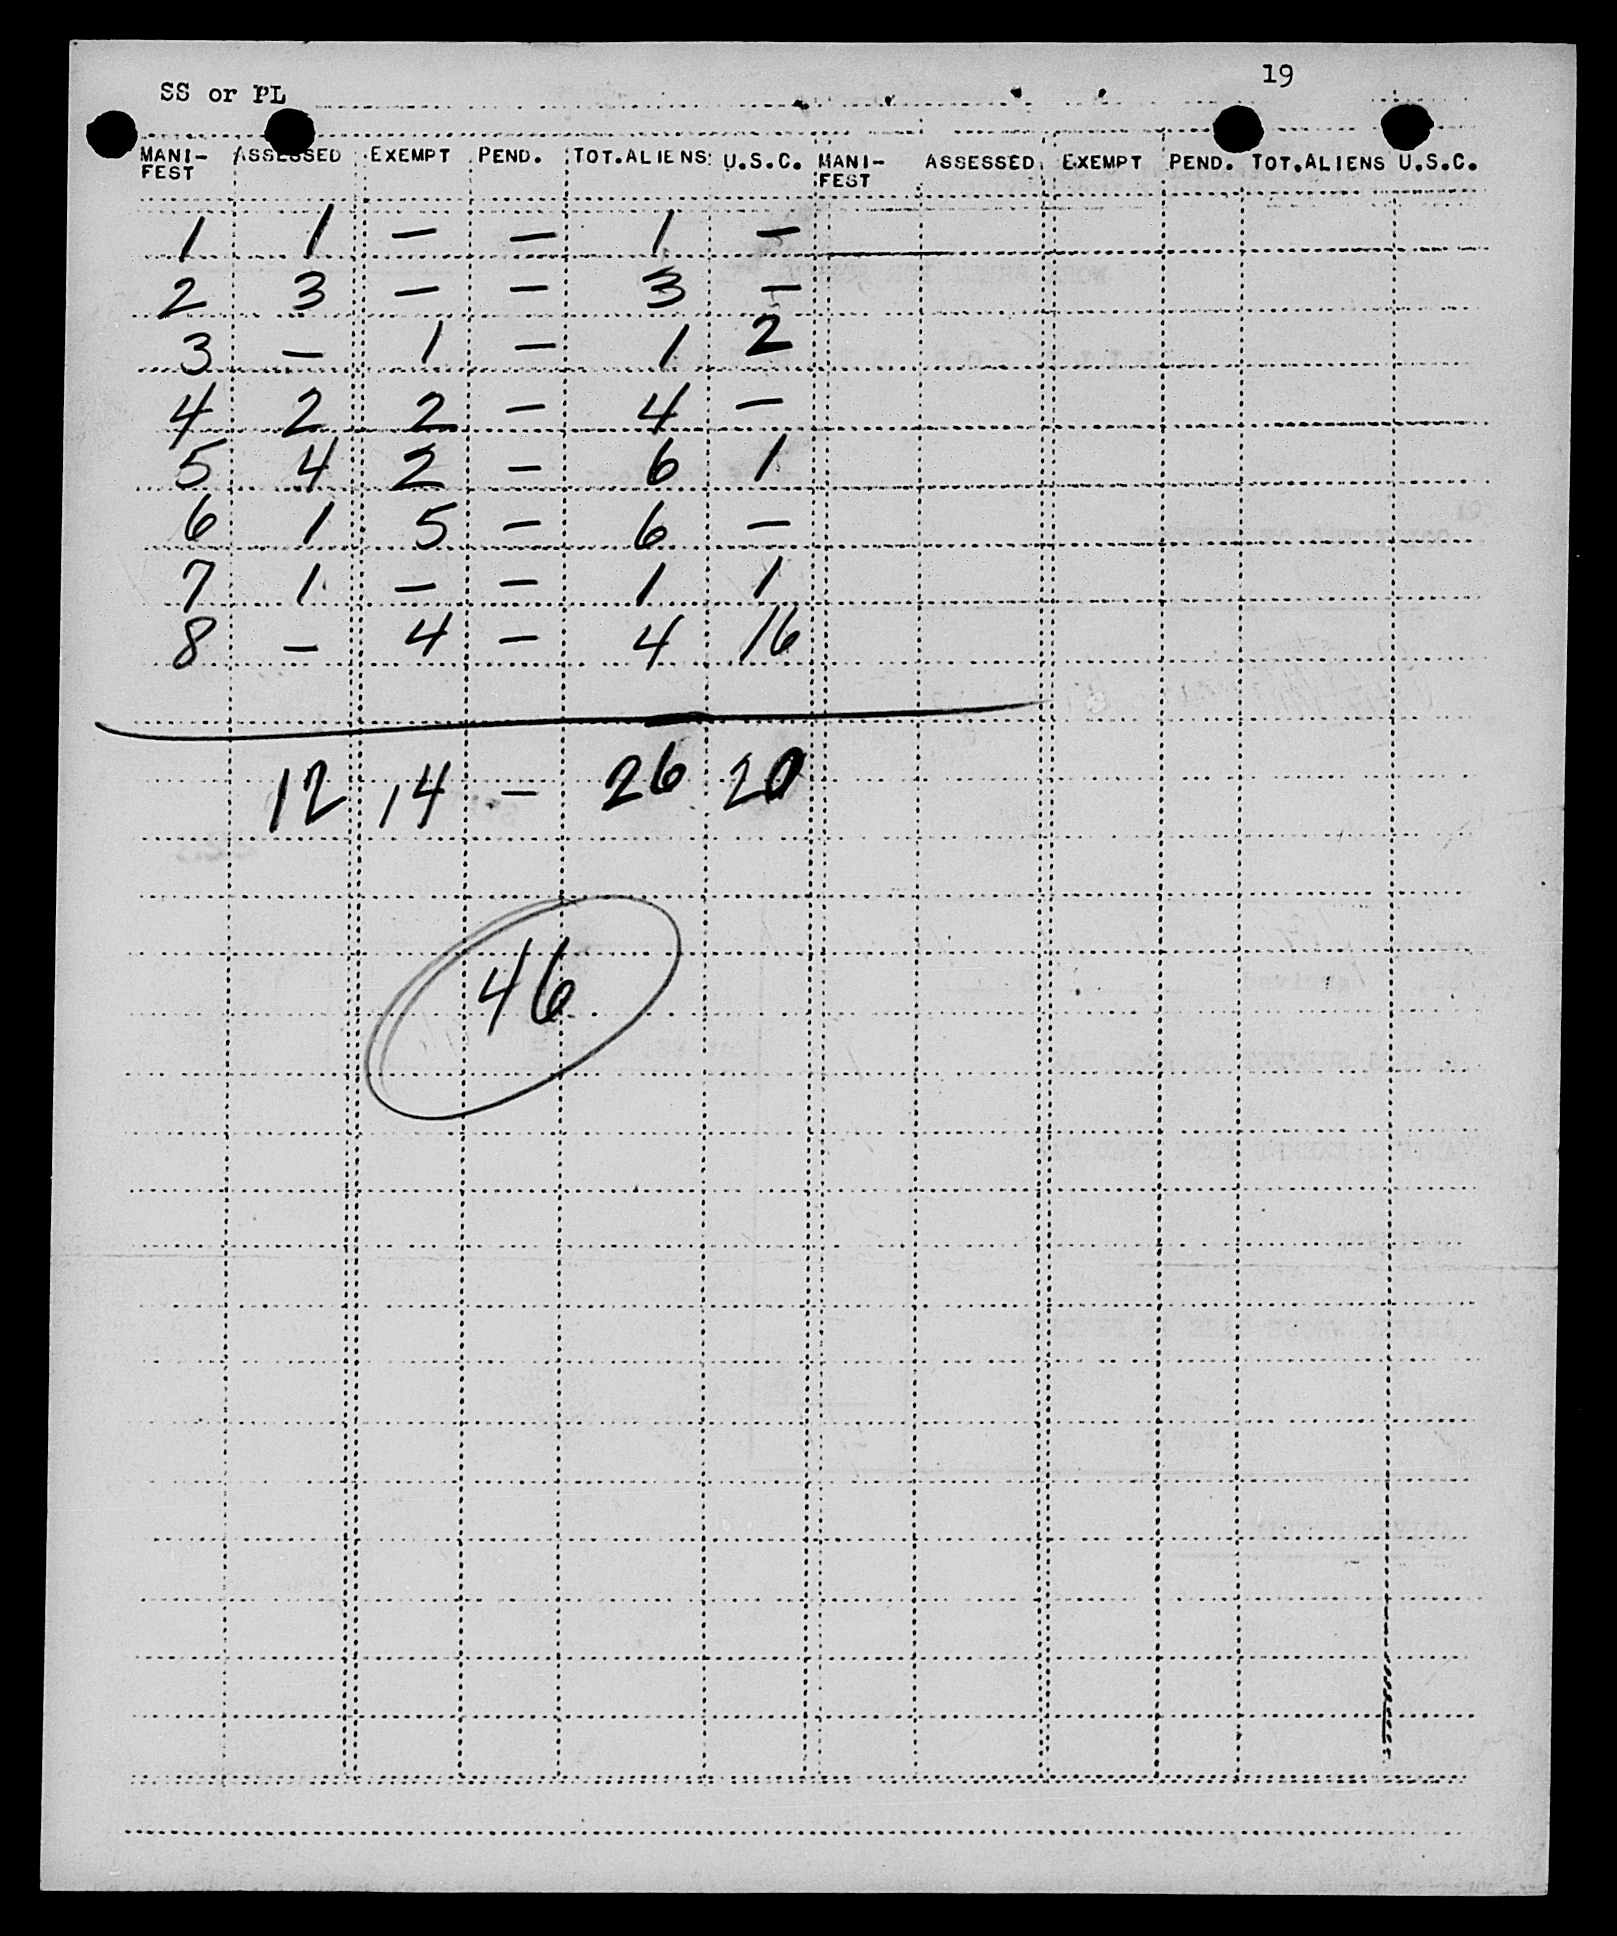 19
SS or PL
MANI- ASSESSED EXEMPT PEND. TOT.ALIENS U.S.C. MANI- ASSESSED EXEMPT PEND. TOT.ALIENS U.S.C.
FEST FEST
1 1 — — 1 —
2 3 — — 3 —
3 — 1 — 1 2
4 2 2 — 4 —
5 4 2 — 6 1
6 1 5 — 6 —
7 1 — — 1 1
8 — 4 — 4 16
12 14 — 26 20
46